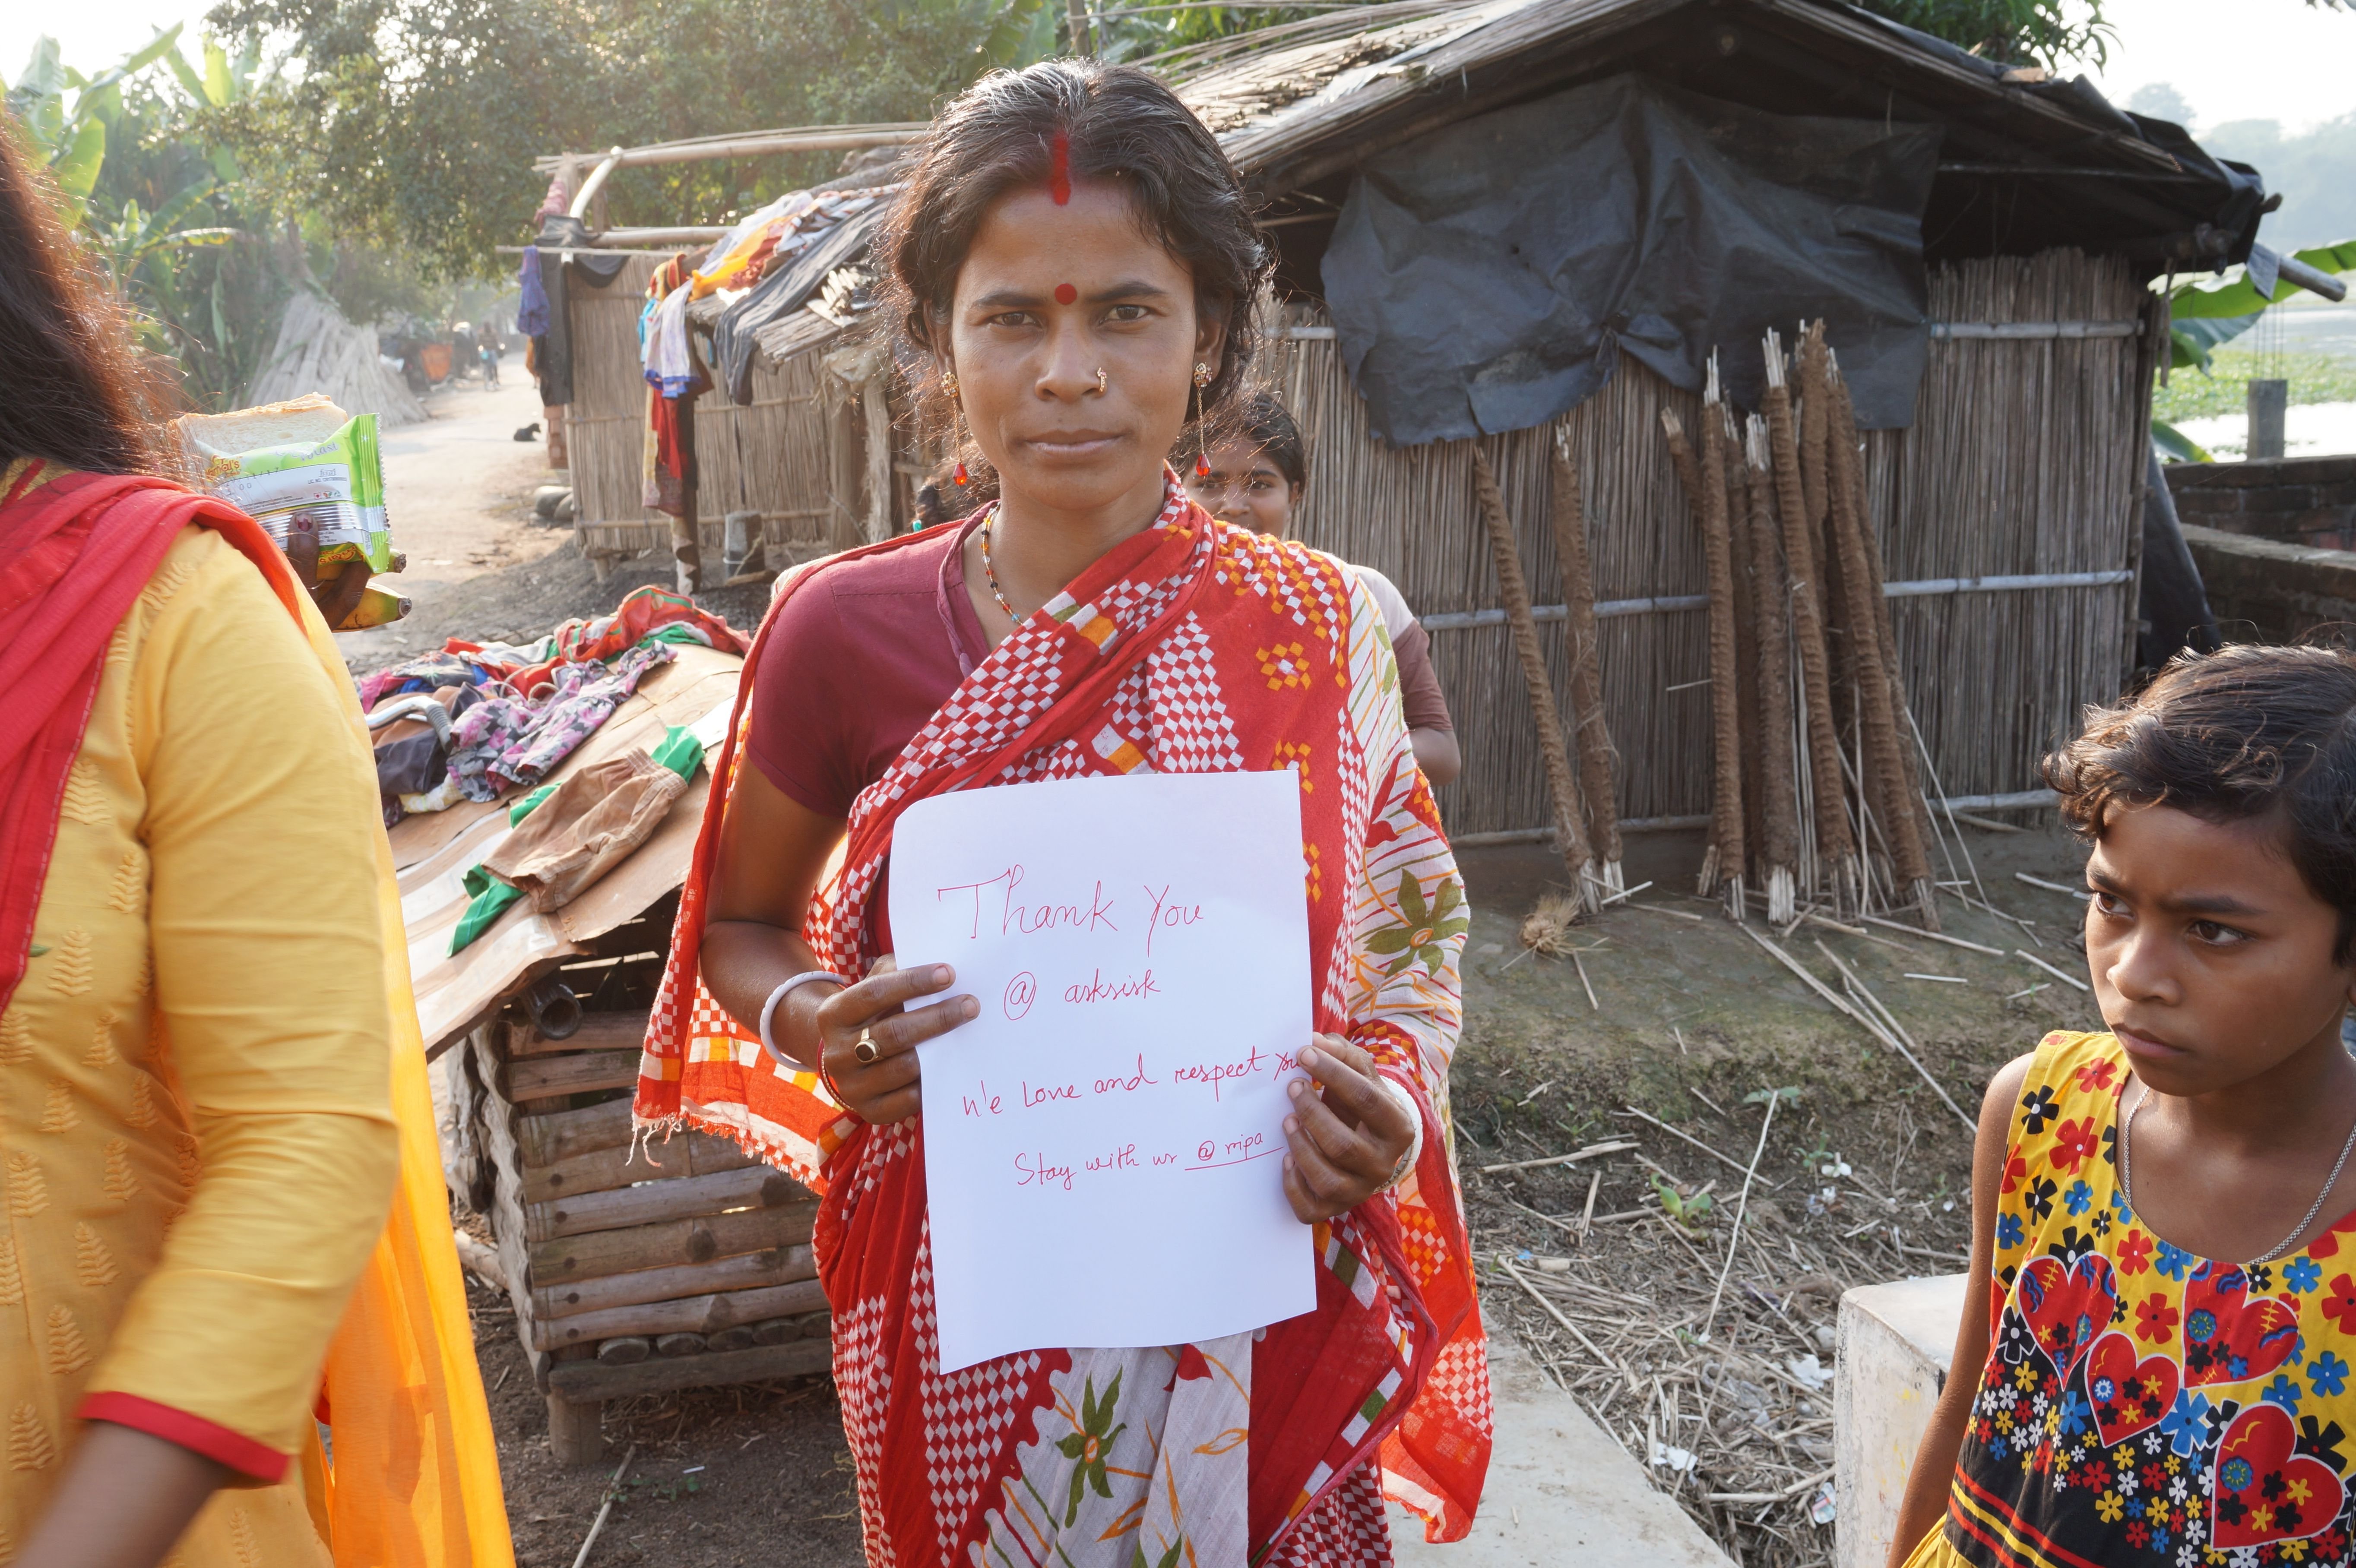 Thank You
@ asksisk
We Love and respect you
Stay with us @ mipa